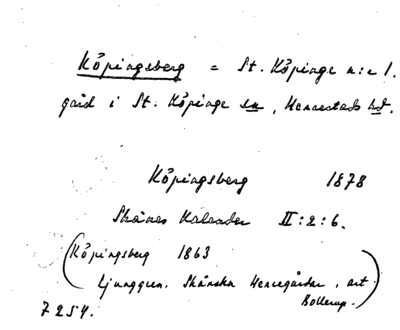 Köpingsberg = St. Köpinge n:r 1.
gård i St. Köpinge sn, Herrestads hd.
Köpingsberg 1878
Skånes Kalender II:2:6.
(Köpingsberg 1863
Ljunggren. Skånska Herregårdar, art. Bollerup.)
7254.